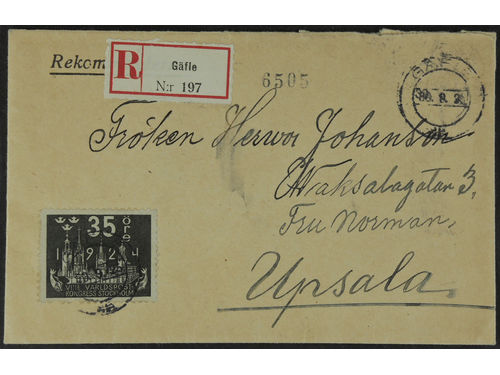 Rekom
R
Gäfle
N:r 197
6505
Fröken Herwor Johanson
Waksalagatan 3,
Fru Norman,
Upsala.
35 öre
1924
VIII VÄRLDSPOST
KONGRESS STOCKHOLM